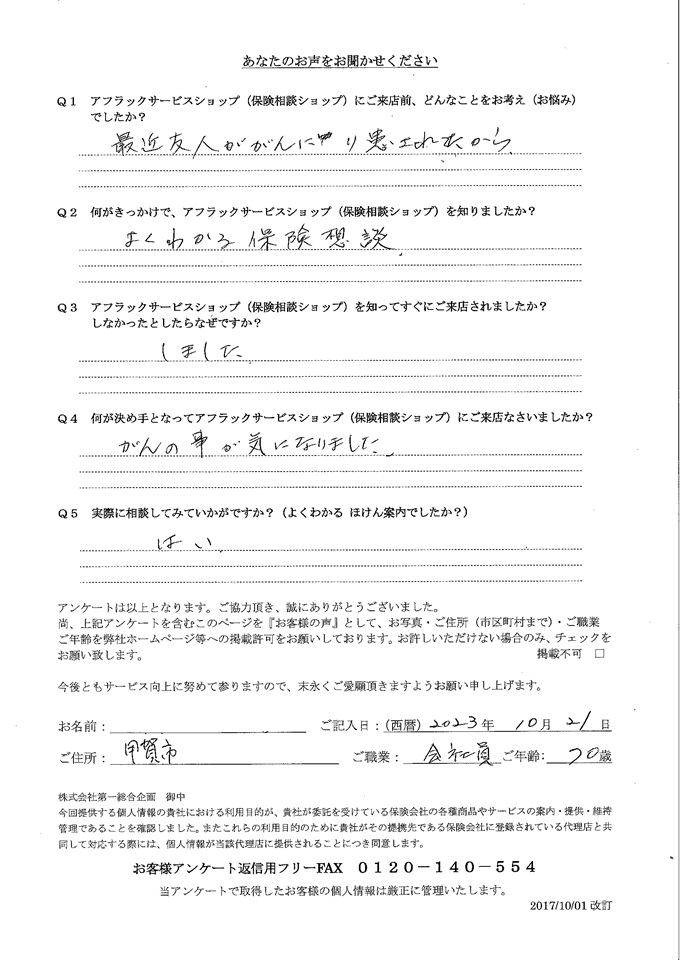 あなたのお声をお聞かせください
Q1 アフラックサービスショップ（保険相談ショップ）にご来店前、どんなことをお考え（お悩み）
でしたか？
最近友人ががんにやり患されたから
Q2 何がきっかけで、アフラックサービスショップ（保険相談ショップ）を知りましたか？
よくわかる保険想談
Q3 アフラックサービスショップ（保険相談ショップ）を知ってすぐにご来店されましたか？
しなかったとしたらなぜですか？
しました
Q4 何が決め手となってアフラックサービスショップ（保険相談ショップ）にご来店なさいましたか？
がんの事が気になりました
Q5 実際に相談してみていかがですか？（よくわかる ほけん案内でしたか？）
はい
アンケートは以上となります。ご協力頂き、誠にありがとうございました。
尚、上記アンケートを含むこのページを『お客様の声』として、お写真・ご住所（市区町村まで）・ご職業
ご年齢を弊社ホームページ等への掲載許可をお願いしております。お許しいただけない場合のみ、チェックを
お願い致します。 掲載不可 □
今後ともサービス向上に努めて参りますので、末永くご愛顧頂きますようお願い申し上げます。
お名前： ご記入日：（西暦）2023年 10月 21日
ご住所： 甲賀市 ご職業： 会社員 ご年齢： 70歳
株式会社第一総合企画 御中
今回提供する個人情報の貴社における利用目的が、貴社が委託を受けている保険会社の各種商品やサービスの案内・提供・維持
管理であることを確認しました。またこれらの利用目的のために貴社がその提携先である保険会社に登録されている代理店と共
同して対応する際には、個人情報が当該代理店に提供されることにつき同意します。
お客様アンケート返信用フリーFAX 0120－140－554
当アンケートで取得したお客様の個人情報は厳正に管理いたします。
2017/10/01 改訂